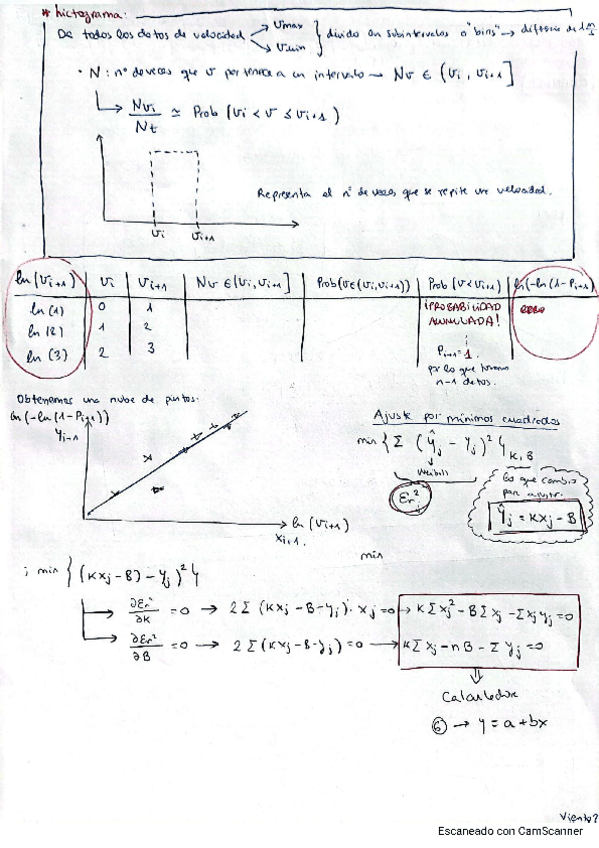 * histograma:
De todos los datos de velocidad Vmax Vmin } divido en subintervalos o "bins" → diferencia de 1 m/s
· N: nº de veces que v pertenece a un intervalo → Nv ∈ (vi, vi+1]
Nvi / Nt ≃ Prob (vi < v ≤ vi+1)
Representa el nº de veces que se repite una velocidad.
vi vi+1
ln(vi+1) | vi | vi+1 | Nv ∈ (vi, vi+1] | Prob(v∈(vi,vi+1)) | Prob (v<vi+1) | ln(-ln(1-Pi+1)
ln (1) 0 1 ¡PROBABILIDAD
ln (2) 1 2 ACUMULADA!
ln (3) 2 3
Pi+1 = 1.
por lo que tenemos
n-1 datos.
Obtenemos una nube de puntos:
ln(-ln(1-Pi+1))
yi-1
ln (vi+1)
xi+1
Ajuste por mínimos cuadrados
min { Σ (ŷj - yj)² } K, B
Weibull
Er²
lo que cambio
para ajustar.
ŷj = Kxj - B
min
; min { (Kxj - B) - yj)² }
∂Er²/∂K = 0 → 2 Σ (Kxj - B - yj) · xj = 0 → K Σ xj² - B Σ xj - Σ xj yj = 0
∂Er²/∂B = 0 → 2 Σ (Kxj - B - yj) = 0 → K Σ xj - n B - Σ yj = 0
Calculadora
⑥ → y = a + bx
Viento 7
Escaneado con CamScanner